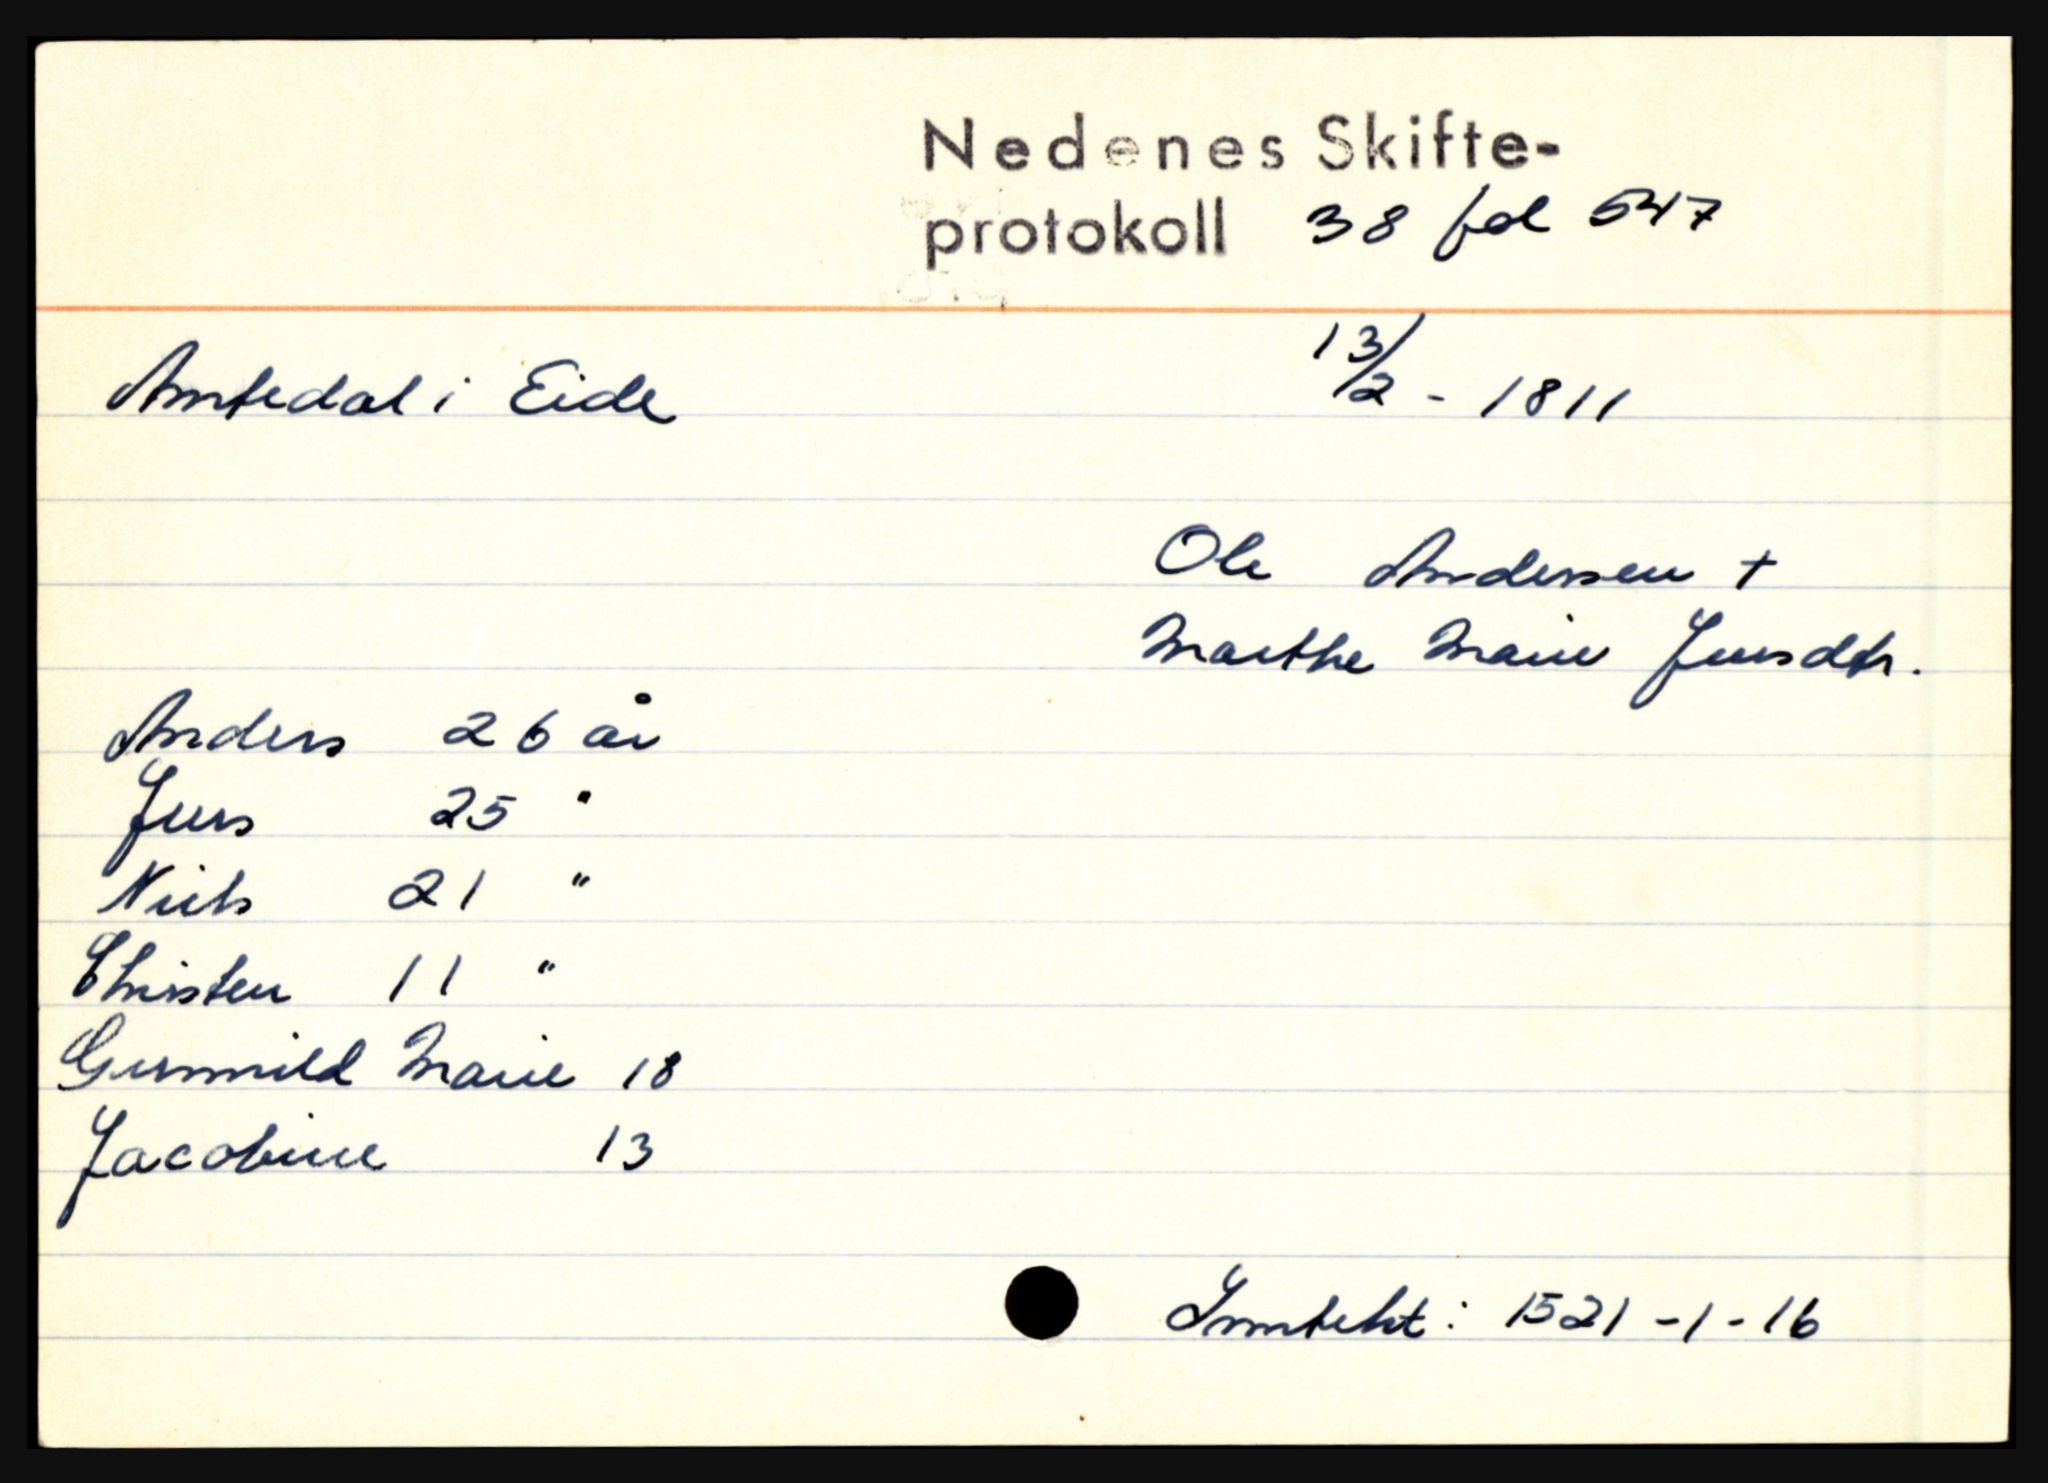 Nedenes Skifte-
protokoll 38 fol 547
Amtedal i Eide 13/2 - 1811
Ole Andersen +
Marthe Marie Jensdtr.
Anders 26 år
Jens 25 "
Niels 21 "
Christen 11 "
Gunnild Marie 18
Jacobine 13
Inntekt: 1521 - 1 - 16